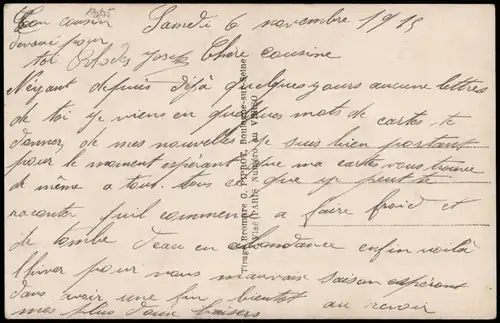 Ton cousin
dévoué pour
toi
Samedi 6 novembre 1915
Chère cousine
N'éyant depuis déjà quelques jours aucune lettres
de toi je viens en quelques mots de cartes te
donner de mes nouvelles je suis bien portant
pour le moment espérant que ma cartes vous trouve
de même a tout. Tous ce que je peut te
raconter qu'il commence a faire froid et
il tombe d'eau en abondance enfin voilà
l'hiver pour nous mauvais saison espérons
d'avoir une fin bientôt au revoir
mes plus doux baisers
Tirage Bromure G. PIPROT, Boulogne-sur-Seine
Visé PARIS Numéro au VERSO